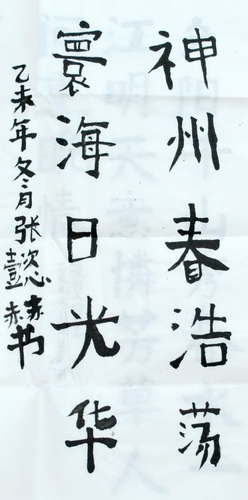 神州春浩荡
寰海日光华
乙未年冬月张懿赫书